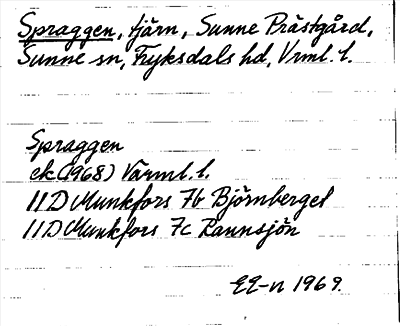 Spraggen, tjärn, Sunne Prästgård,
Sunne sn, Fryksdals hd, Vrml. l.
Spraggen
ek (1968) Värml. l.
11D Munkfors 7b Björnberget
11D Munkfors 7c Rannsjön
EE-n 1969.